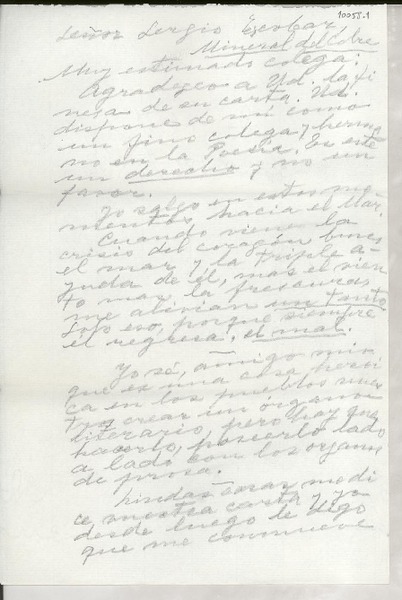 10055-1
Señor Sergio Escobar,
Mineral del Cobre
Muy estimado colega:
Agradezco a Ud. la fi-
neza de su carta. Ud.
dispone de mí como
un fino colega y herma-
no en la Poesía. Es este
un derecho y no un
favor.
Yo salgo en estos mo-
mentos hacia el Mar.
Cuando viene la
crisis del corazón busco
el mar y la triple a-
yuda de él, mas el vien-
to mar, la frescura
me alivian un tanto
Solo eso, porque siempre
él regresa, el mal.
Yo sé, amigo mío
que es una cosa heroi-
ca en los pueblos nues-
tros crear un órgano
literario, pero hay que
hacerlo, ponerlo lado
a lado con los órganos
de prosa.
Lindas cosas me di-
ce vuestra carta y yo
desde luego le digo
que me conmueve